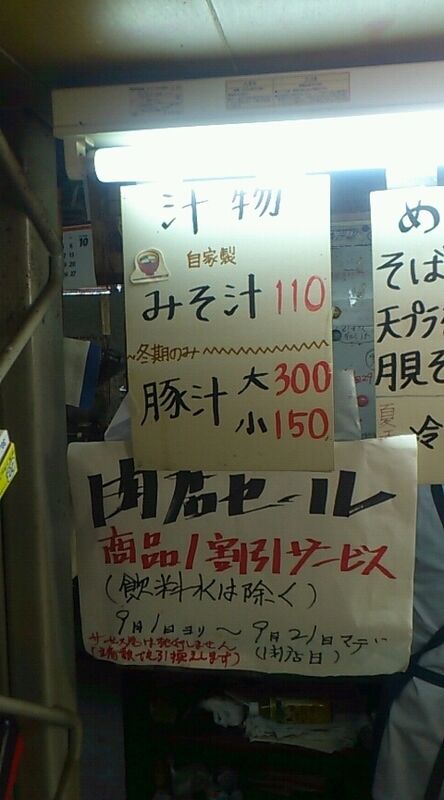 汁物
自家製
みそ汁 110
冬期のみ
豚汁 大 300
小 150
め
そば
天プラ
月見そ
冷
10
閉店セール
商品1割引サービス
(飲料水は除く)
9月1日ヨリ〜9月21日マデ
(閉店日)